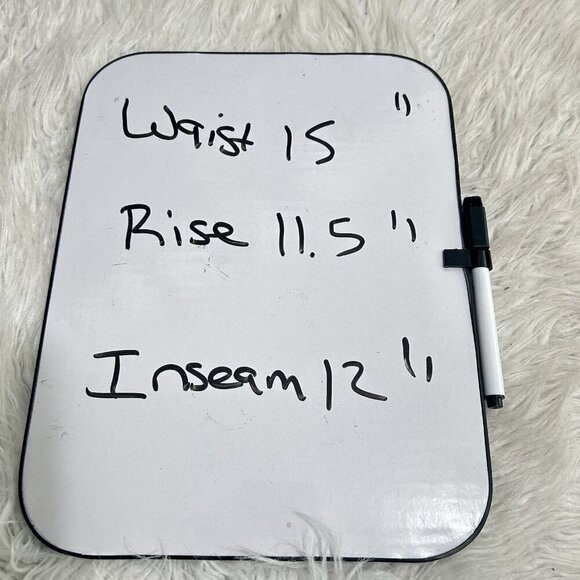 Waist 15 "
Rise 11.5 "
Inseam 12 "